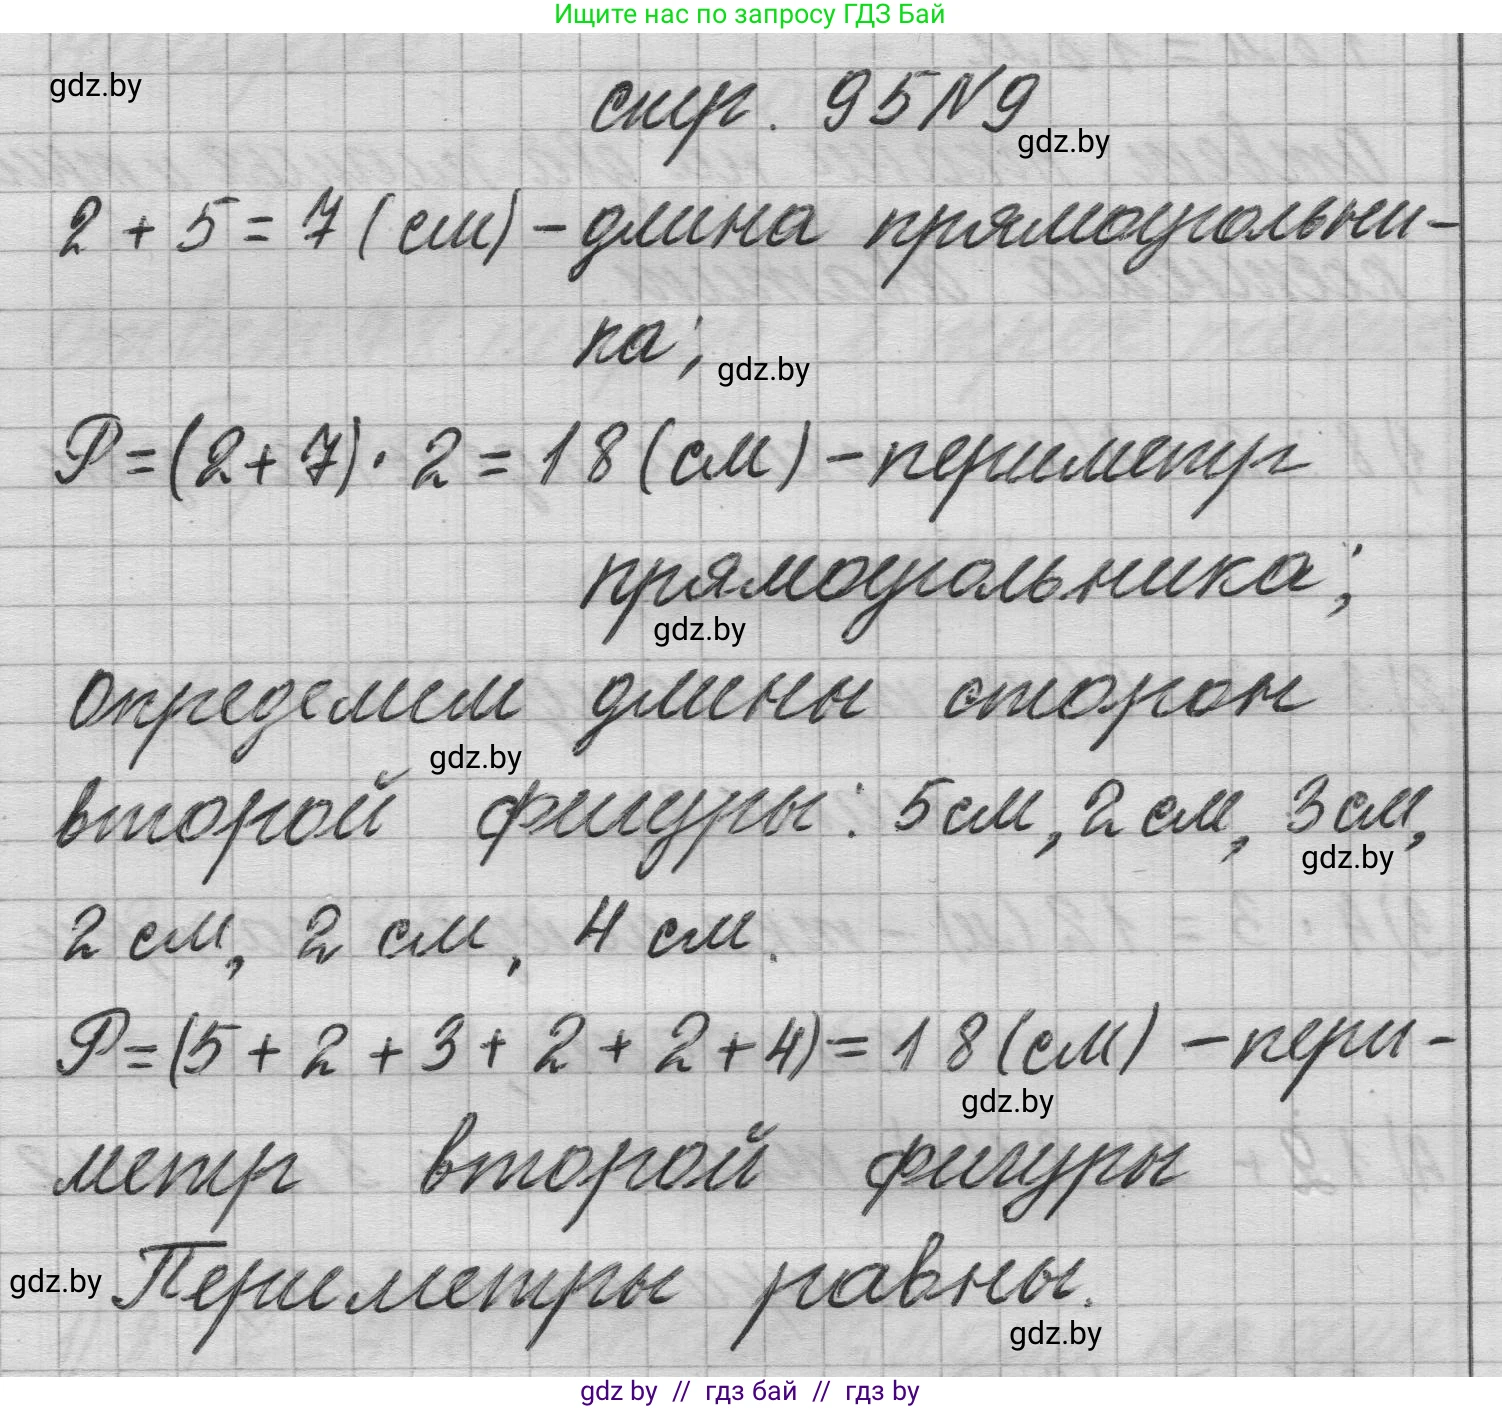 Ищите нас по запросу ГДЗ Бай
gdz.by
стр. 95 N 9
gdz.by
2 + 5 = 7 (см) - длина прямоугольни-
ка;
gdz.by
P = (2 + 7) · 2 = 18 (см) - периметр
прямоугольника;
gdz.by
определим длины сторон
gdz.by
второй фигуры: 5 см, 2 см, 3 см,
gdz.by
2 см, 2 см, 4 см.
P = (5 + 2 + 3 + 2 + 2 + 4) = 18 (см) - пери-
gdz.by
метр второй фигуры
gdz.by
Периметры равны.
gdz.by
gdz by // гдз бай // гдз by